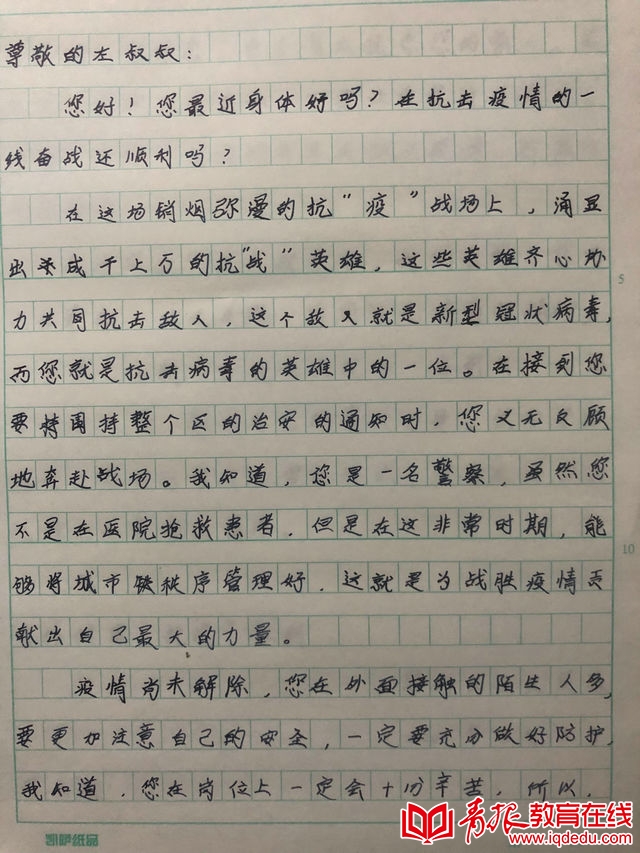 尊敬的左叔叔：
您好！您最近身体好吗？在抗击疫情的一
线奋战还顺利吗？
在这场销烟弥漫的抗“疫”战场上，涌显
出成千上万的抗“战”英雄，这些英雄齐心协
力共同抗击敌人，这个敌人就是新型冠状病毒，
而您就是抗击病毒的英雄中的一位。在接到您
要持整个区的治安的通知时，您义无反顾
地奔赴战场。我知道，您是一名警察，虽然您
不是在医院抢救患者，但是在这非常时期，能
够将城市秩序管理好，这就是为战胜疫情贡
献出自己最大的力量。
疫情尚未解除，您在外面接触的陌生人多，
要更加注意自己的安全，一定要充分做好防护，
我知道，您在岗位上一定会十分辛苦，所以，
5
10
凯萨纸品
青报教育在线
www.iqdedu.com